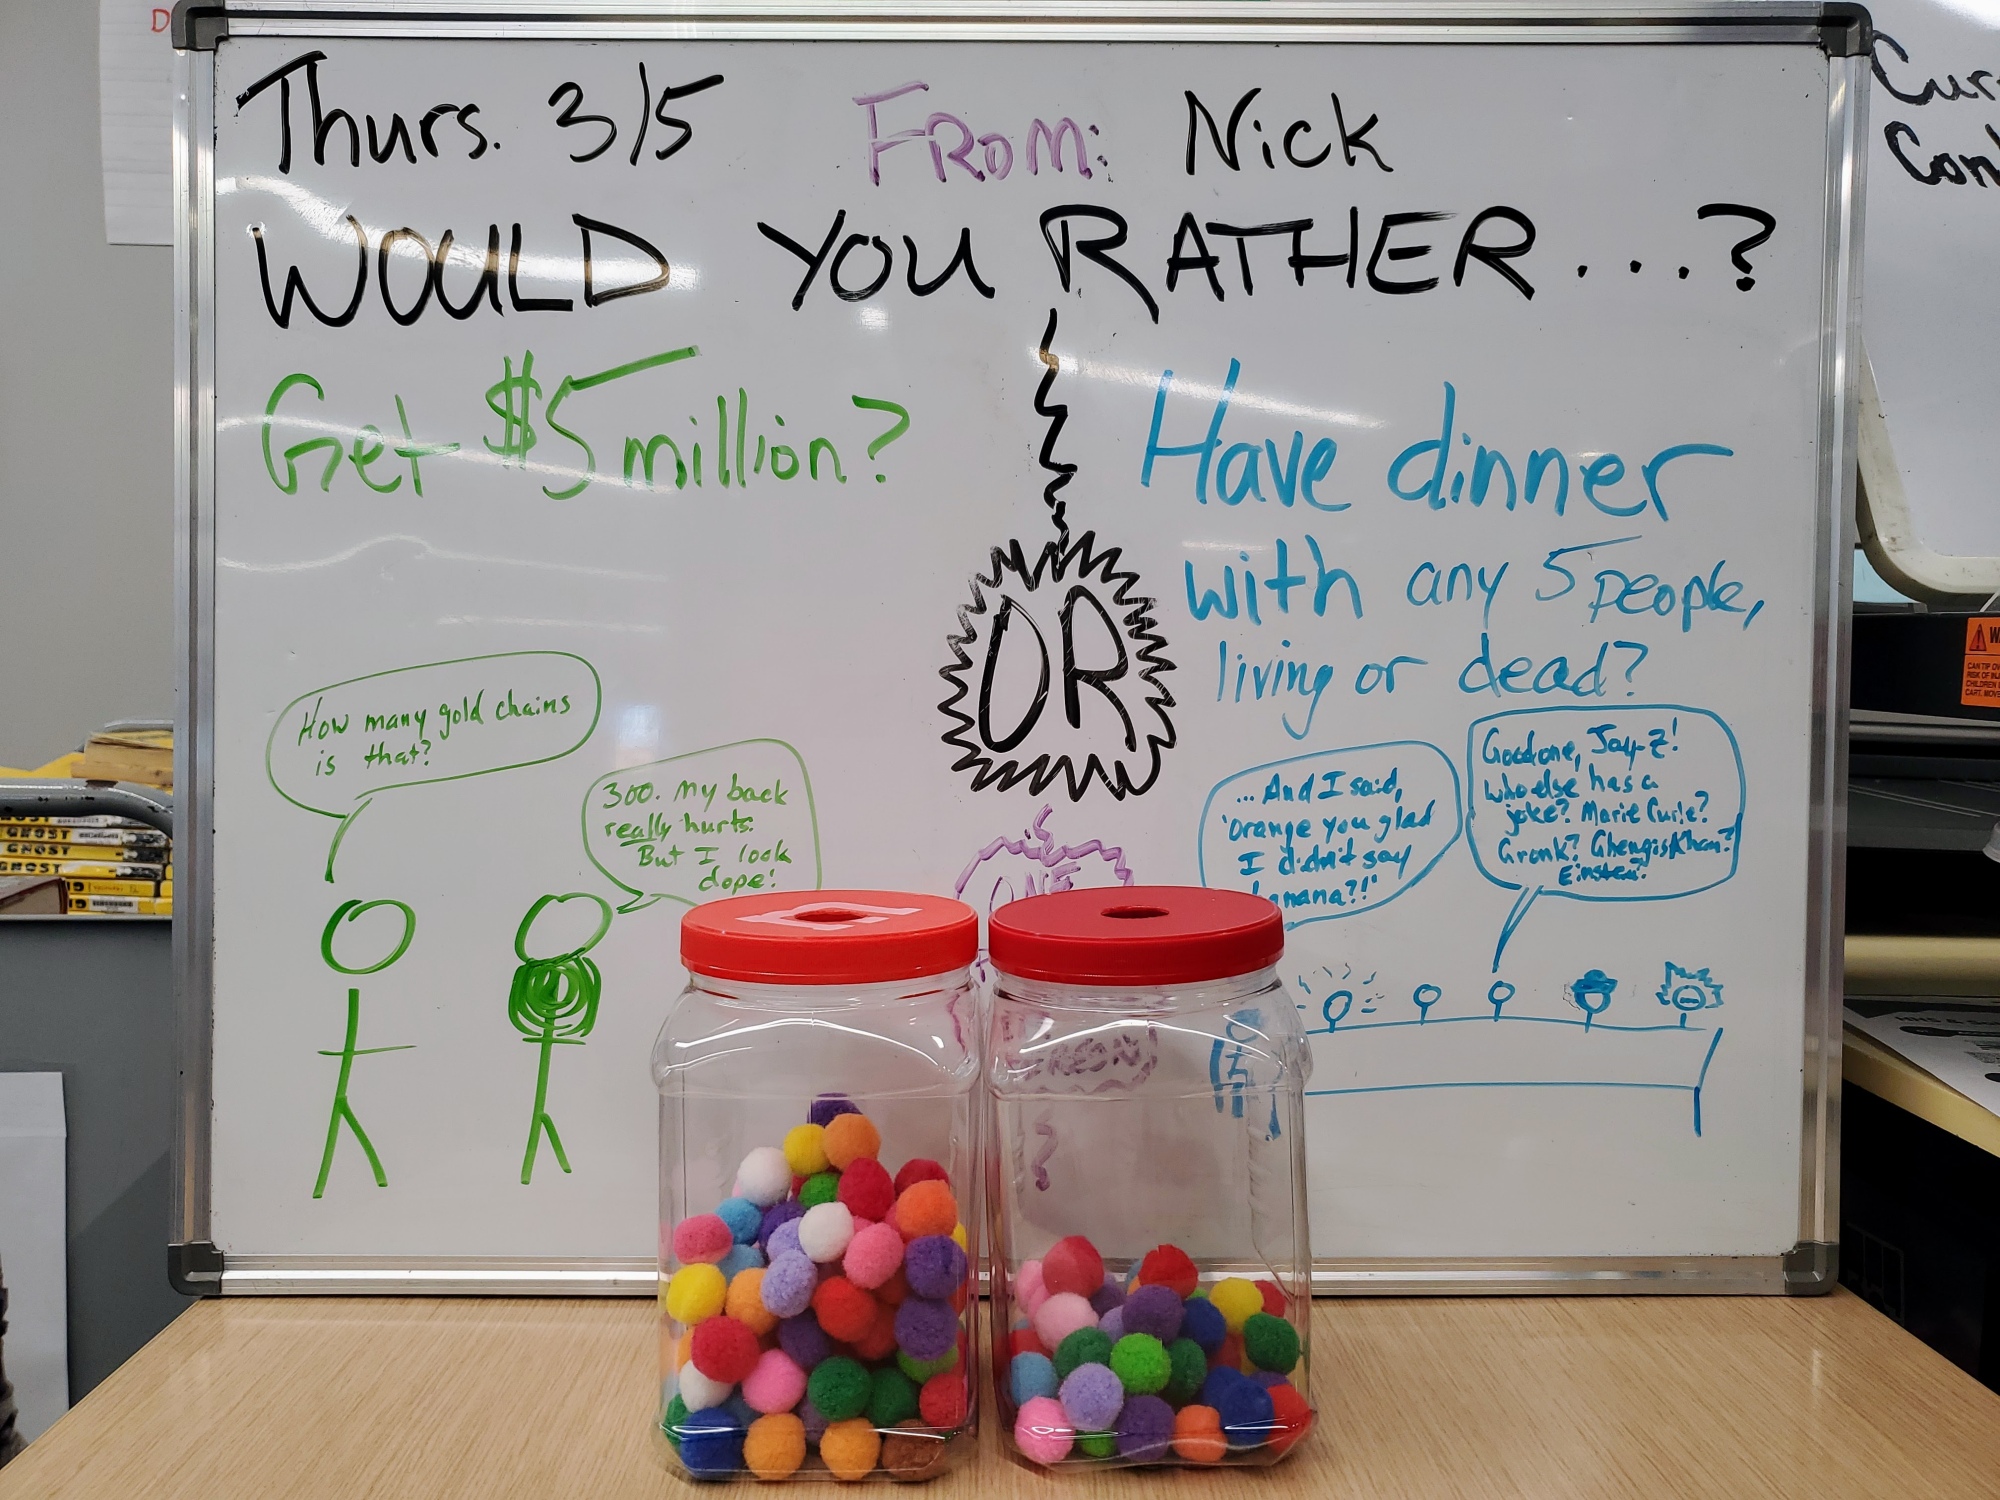 Thurs. 3/5 FROM: Nick
WOULD YOU RATHER...?
Get $5 million?
OR
Have dinner
with any 5 people,
living or dead?
How many gold chains
is that?
300. My back
really hurts.
But I look
dope!
...And I said,
'Orange you glad
I didn't say
Good one, Jay-Z!
Who else has a
joke? Marie Curie?
Gronk? Ghengis Khan?
Einstein?
ONE
PERSON
?
GHOST
GHOST
GHOST